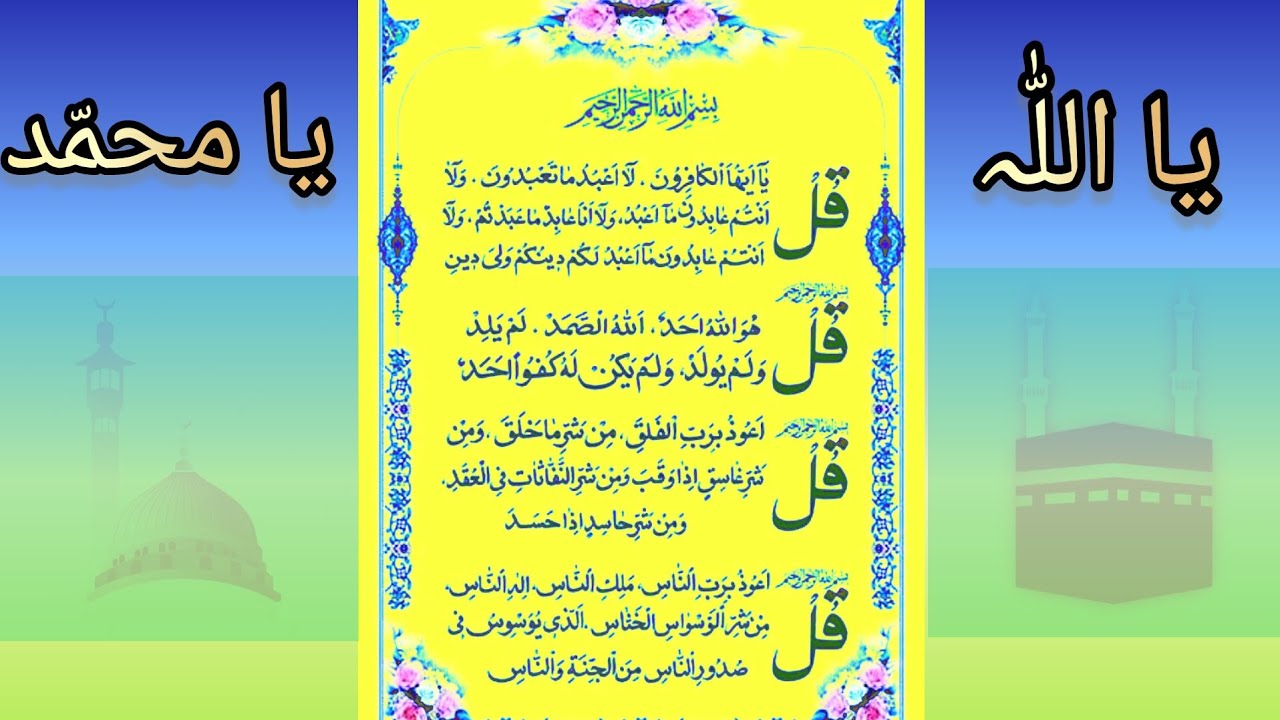 يا اللّٰه
يا محمّد
بِسْمِ اللهِ الرَّحْمنِ الرَّحيمِ
قُلْ يَآ اَيُّهَا الْكافِرُونَ، لَآ اَعْبُدُ مَا تَعْبُدُونَ، وَلَآ
اَنْتُمْ عَابِدُونَ مَآ اَعْبُدُ، وَلَآ اَنَا عَابِدٌ مَا عَبَدْتُمْ، وَلَآ
اَنْتُمْ عَابِدُونَ مَآ اَعْبُدُ لَكُمْ دِينُكُمْ وَلِىَ دِينِ
بِسْمِ اللهِ الرَّحْمنِ الرَّحيمِ
قُلْ هُوَ اللهُ اَحَدٌ، اَللهُ الصَّمَدْ، لَمْ يَلِدْ
وَلَمْ يُولَدْ، وَلَمْ يَكُنْ لَهُ كُفُوًا اَحَدٌ
بِسْمِ اللهِ الرَّحْمنِ الرَّحيمِ
قُلْ اَعُوذُ بِرَبِّ الْفَلَقِ، مِنْ شَرِّ مَا خَلَقَ، وَمِنْ
شَرِّ غَاسِقٍ اِذَا وَقَبَ وَمِنْ شَرِّ النَّفَّاثَاتِ فِي الْعُقَدِ،
وَمِنْ شَرِّ حَاسِدٍ اِذَا حَسَدَ
بِسْمِ اللهِ الرَّحْمنِ الرَّحيمِ
قُلْ اَعُوذُ بِرَبِّ النَّاسِ، مَلِكِ النَّاسِ، اِلهِ النَّاسِ،
مِنْ شَرِّ الْوَسْوَاسِ الْخَنَّاسِ، اَلَّذِى يُوَسْوِسُ فِى
صُدُورِ النَّاسِ مِنَ الْجِنَّةِ وَالنَّاسِ